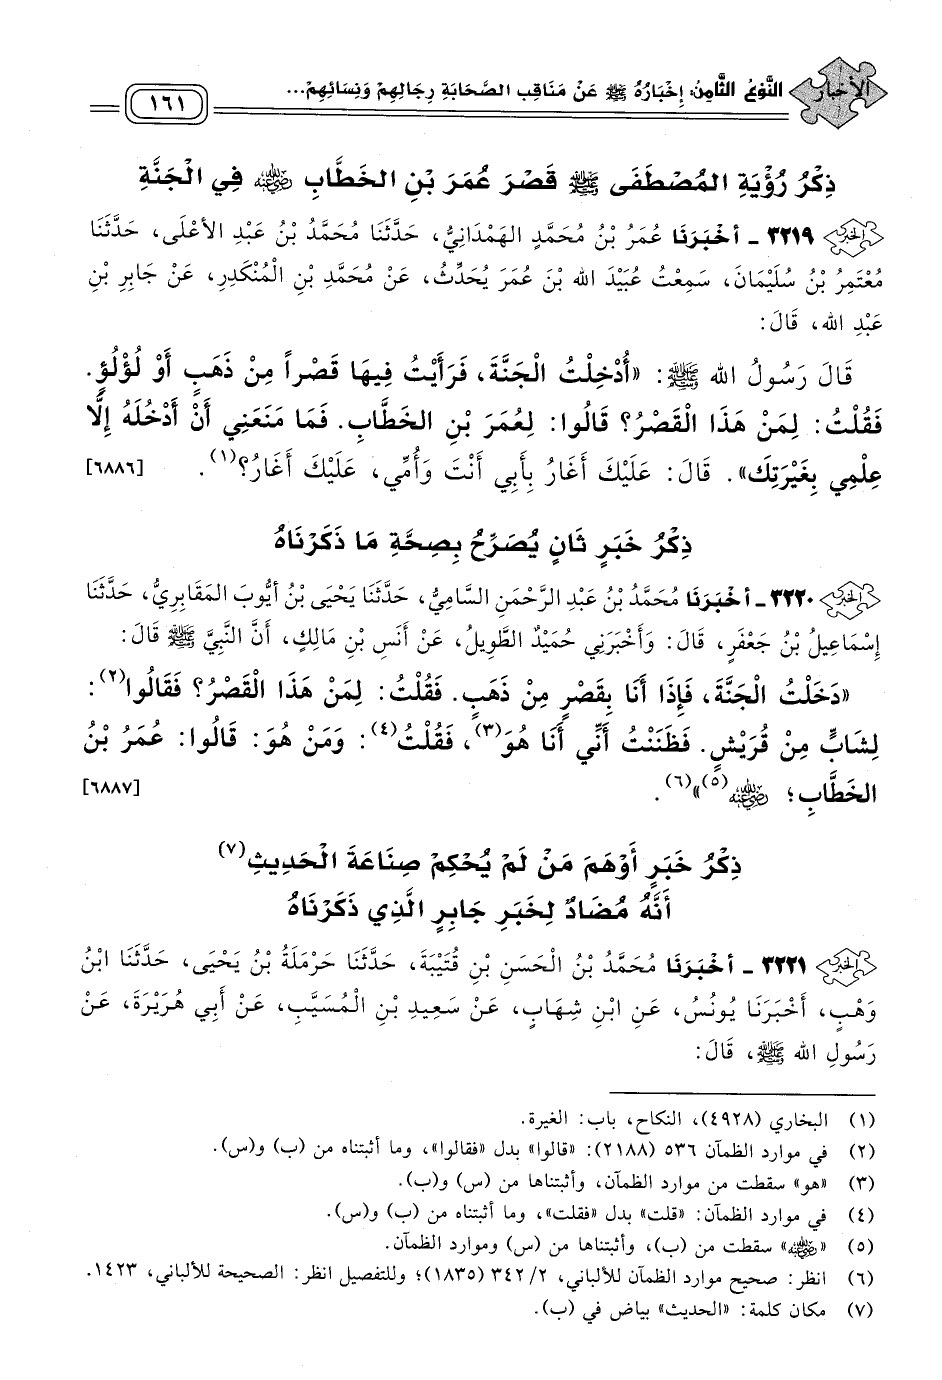 الأخبار النَّوْعُ الثَّامِنُ: إِخْبَارُهُ ﷺ عَنْ مَنَاقِبِ الصَّحَابَةِ رِجَالِهِمْ وَنِسَائِهِمْ... ١٦١
ذِكْرُ رُؤْيَةِ المُصْطَفَى ﷺ قَصْرَ عُمَرَ بْنِ الخَطَّابِ رضي الله عنه فِي الْجَنَّةِ
٣٢١٩ - أَخْبَرَنَا عُمَرُ بْنُ مُحَمَّدٍ الهَمْدَانِيُّ، حَدَّثَنَا مُحَمَّدُ بْنُ عَبْدِ الأَعْلَى، حَدَّثَنَا
مُعْتَمِرُ بْنُ سُلَيْمَانَ، سَمِعْتُ عُبَيْدَ الله بْنَ عُمَرَ يُحَدِّثُ، عَنْ مُحَمَّدِ بْنِ الْمُنْكَدِرِ، عَنْ جَابِرِ بْنِ
عَبْدِ الله، قَالَ:
قَالَ رَسُولُ الله ﷺ: «أُدْخِلْتُ الْجَنَّةَ، فَرَأَيْتُ فِيهَا قَصْراً مِنْ ذَهَبٍ أَوْ لُؤْلُؤٍ.
فَقُلْتُ: لِمَنْ هَذَا الْقَصْرُ؟ قَالُوا: لِعُمَرَ بْنِ الخَطَّابِ. فَمَا مَنَعَنِي أَنْ أَدْخُلَهُ إِلَّا
عِلْمِي بِغَيْرَتِكَ». قَالَ: عَلَيْكَ أَغَارُ بِأَبِي أَنْتَ وَأُمِّي، عَلَيْكَ أَغَارُ؟(١). [٦٨٨٦]
ذِكْرُ خَبَرٍ ثَانٍ يُصَرِّحُ بِصِحَّةِ مَا ذَكَرْنَاهُ
٣٢٢٠ - أَخْبَرَنَا مُحَمَّدُ بْنُ عَبْدِ الرَّحْمَنِ السَّامِيُّ، حَدَّثَنَا يَحْيَى بْنُ أَيُّوبَ المَقَابِرِيُّ، حَدَّثَنَا
إِسْمَاعِيلُ بْنُ جَعْفَرٍ، قَالَ: وَأَخْبَرَنِي حُمَيْدٌ الطَّوِيلُ، عَنْ أَنَسِ بْنِ مَالِكٍ، أَنَّ النَّبِيَّ ﷺ قَالَ:
«دَخَلْتُ الْجَنَّةَ، فَإِذَا أَنَا بِقَصْرٍ مِنْ ذَهَبٍ. فَقُلْتُ: لِمَنْ هَذَا الْقَصْرُ؟ فَقَالُوا(٢):
لِشَابٍّ مِنْ قُرَيْشٍ. فَظَنَنْتُ أَنِّي أَنَا هُوَ(٣)، فَقُلْتُ(٤): وَمَنْ هُوَ: قَالُوا: عُمَرُ بْنُ
الخَطَّابِ؛ رضي الله عنه(٥)»(٦). [٦٨٨٧]
ذِكْرُ خَبَرٍ أَوْهَمَ مَنْ لَمْ يُحْكِمْ صِنَاعَةَ الْحَدِيثِ(٧)
أَنَّهُ مُضَادٌ لِخَبَرِ جَابِرٍ الَّذِي ذَكَرْنَاهُ
٣٢٢١ - أَخْبَرَنَا مُحَمَّدُ بْنُ الْحَسَنِ بْنِ قُتَيْبَةَ، حَدَّثَنَا حَرْمَلَةُ بْنُ يَحْيَى، حَدَّثَنَا ابْنُ
وَهْبٍ، أَخْبَرَنَا يُونُسُ، عَنِ ابْنِ شِهَابٍ، عَنْ سَعِيدِ بْنِ الْمُسَيَّبِ، عَنْ أَبِي هُرَيْرَةَ، عَنْ
رَسُولِ الله ﷺ، قَالَ:
(١) البخاري (٤٩٢٨)، النكاح، باب: الغيرة.
(٢) في موارد الظمآن ٥٣٦ (٢١٨٨): «قالوا» بدل «فقالوا»، وما أثبتناه من (ب) و(س).
(٣) «هو» سقطت من موارد الظمآن، وأثبتناها من (س) و(ب).
(٤) في موارد الظمآن: «قلت» بدل «فقلت»، وما أثبتناه من (ب) و(س).
(٥) «رضي الله عنه» سقطت من (ب)، وأثبتناها من (س) وموارد الظمآن.
(٦) انظر: صحيح موارد الظمآن للألباني، ٢/ ٣٤٢ (١٨٣٥)؛ وللتفصيل انظر: الصحيحة للألباني، ١٤٢٣.
(٧) مكان كلمة: «الحديث» بياض في (ب).